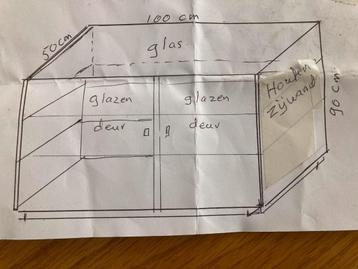 100 cm
50cm
glas
glazen
deur
glazen
deur
Houten
zijwand
90 cm